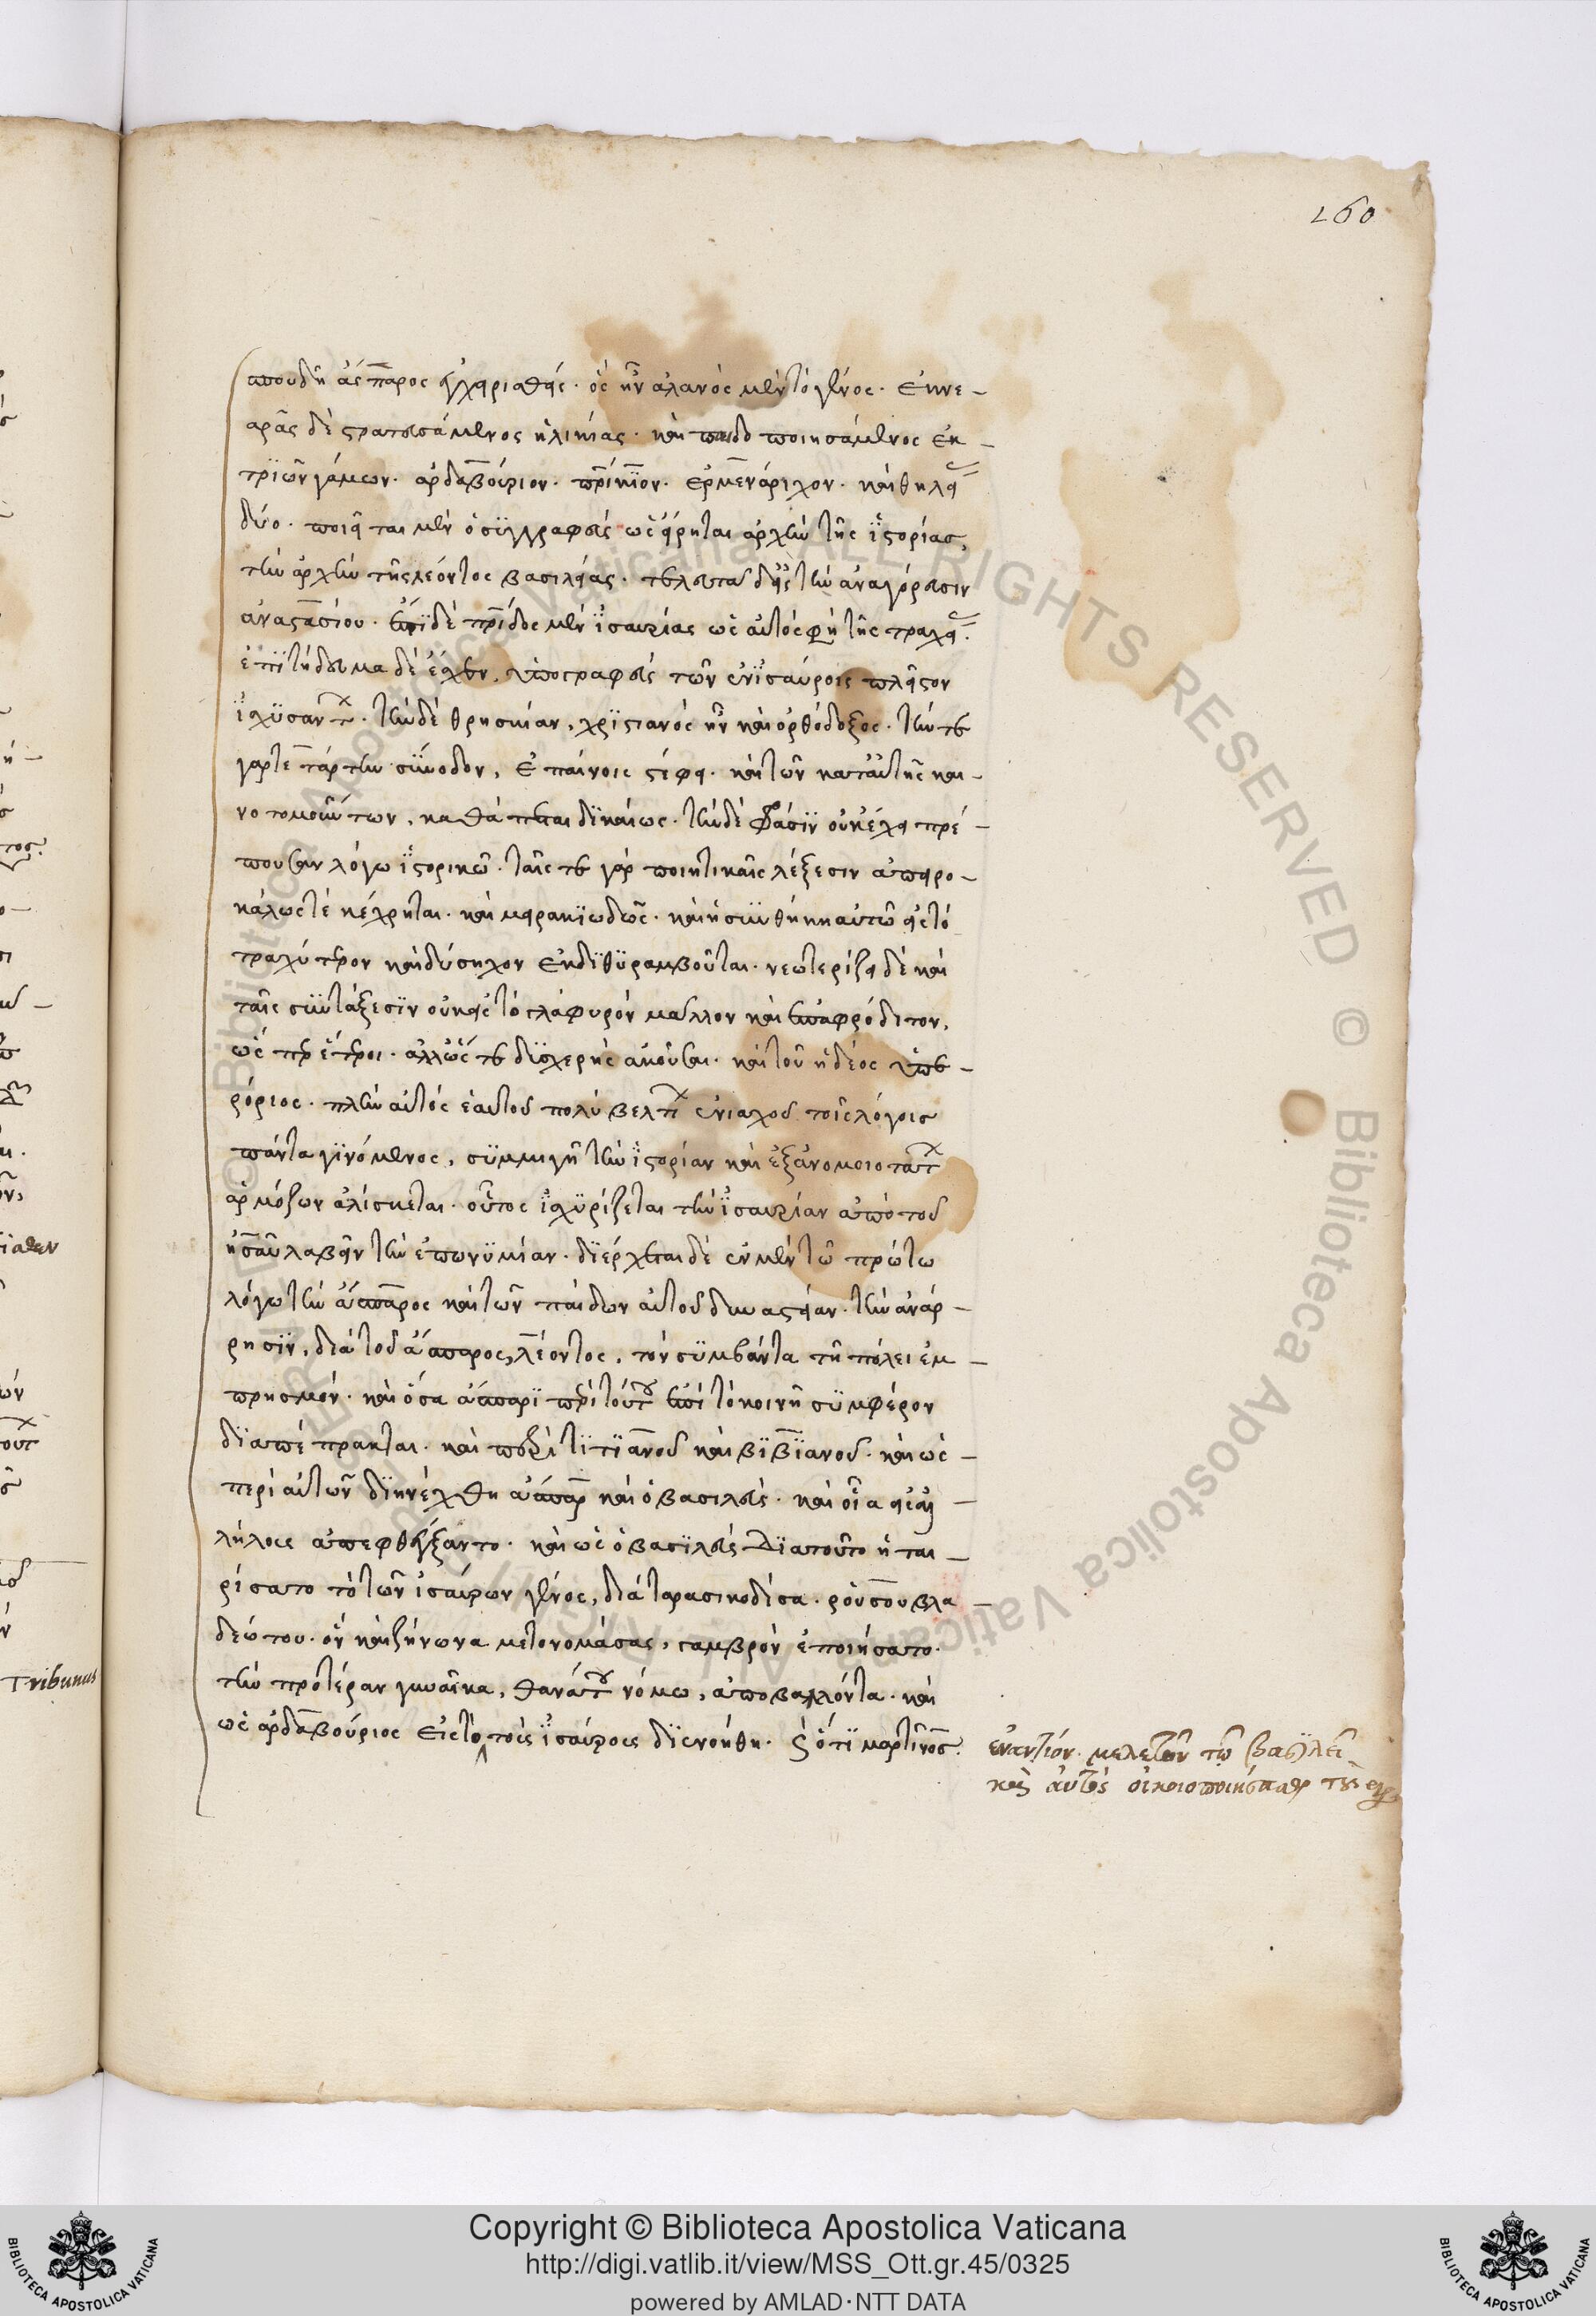 160
σπουδῇ ἄσπαρος ἐγχειρισθείς· ὃς ἦν ἀλανὸς μὲν τὸ γένος· ἐκ νε-
αρᾶς δὲ στρατευσάμενος ἡλικίας· καὶ παιδοποιησάμενος ἐκ
τριῶν γάμων· ἀρδαβούριον· πατρίκιον· ἑρμενάριχον· καὶ θηλείας
δύο· ποιεῖται μὲν ὁ συγγραφεὺς ὡς εἴρηται ἀρχὴν τῆς ἱστορίας,
τὴν ἀρχὴν τῆς λέοντος βασιλείας· τελευτᾶ δ' εἰς τὴν ἀναγόρευσιν
ἀναστασίου· ἐστὶ δὲ πατρίδος μὲν ἰσαυρίας ὡς αὐτός φη τῆς τραχείας·
ἐπιτήδευμα δὲ ἔσχεν, ὑπογραφεὺς τῶν ἐν ἰσαύροις πλεῖστον
ἰσχυσάντων· τὴν δὲ θρησκείαν, χριστιανὸς ἦν καὶ ὀρθόδοξος· τήν τε
γὰρ τετάρτην σύνοδον, ἐπαίνοις στέφει· καὶ τῶν κατ' αὐτῆς και-
νοτομούντων, καθάπτεται δικαίως· τὴν δὲ φράσιν οὐκ ἔχει πρέ-
πουσαν λόγω ἱστορικῶ· ταῖς τε γὰρ ποιητικαῖς λέξεσιν ἀπειρο-
κάλως τε κέχρηται· καὶ μειρακιωδῶς· καὶ ἡ συνθήκη αὐτῶ εἰς τὸ
τραχύτερον καὶ δύσηχον ἐκδιθυραμβοῦται· νεωτερίζει δὲ καὶ
ταῖς συντάξεσιν οὐκ εἰς τὸ γλαφυρὸν μᾶλλον καὶ ἐπαφρόδιτον,
ὥσπερ ἕτεροι· ἀλλ' ὥστε δυσχερὴς ἀκοῦσαι· καὶ τοῦ ἡδέος ὑπε-
ρόριος· πλὴν αὐτὸς ἑαυτοῦ πολὺ βελτίων ἐνιαχοῦ τοῖς λόγοις
πάντα γινόμενος, συμμιγῆ τὴν ἱστορίαν καὶ ἐξ ἀνομοιοτάτων
ἁρμόζων ἁλίσκεται· οὗτος ἰσχυρίζεται τὴν ἰσαυρίαν ἀπὸ τοῦ
ἠσαῦ λαβεῖν τὴν ἐπωνυμίαν· διέρχεται δὲ ἐν μὲν τῶ πρώτω
λόγω τὴν ἄσπαρος καὶ τῶν παίδων αὐτοῦ δυναστείαν· τὴν ἀνάρ-
ρησιν, διὰ τοῦ ἄσπαρος, λέοντος, τὸν συμβάντα τῇ πόλει ἐμ-
πρησμόν· καὶ ὅσα ἄσπαρι περὶ τούτου ἐπὶ τὸ κοινῇ συμφέρον
διαπέπρακται· καὶ περὶ τιτιανοῦ καὶ βιβιανοῦ· καὶ ὡς
περὶ αὐτῶν διηνέχθη ἄσπαρ καὶ ὁ βασιλεύς· καὶ οἷα εἰς ἀλ-
λήλους ἀπεφθέγξαντο· καὶ ὡς ὁ βασιλεὺς διὰ τοῦτο ἡται-
ρίσατο τὸ τῶν ἰσαύρων γένος, διὰ ταρασικοδίσα· ῥουσουμβλα
δεώτου· ὃν καὶ ζήνωνα μετονομάσας, γαμβρὸν ἐποιήσατο·
τὴν προτέραν γυναῖκα, θανάτου νόμω, ἀποβαλόντα· καὶ
ὡς ἀρδαβούριος εἰς τὸ τοὺς ἰσαύρους διενοήθη· καὶ ὅτι μαρτῖνος·
ἐναντίον μελετῶν τῷ βασιλεῖ
καὶ αὐτὸς οἰκειοποιήσασθαι
Tribunus
Copyright © Biblioteca Apostolica Vaticana
http://digi.vatlib.it/view/MSS_Ott.gr.45/0325
powered by AMLAD·NTT DATA